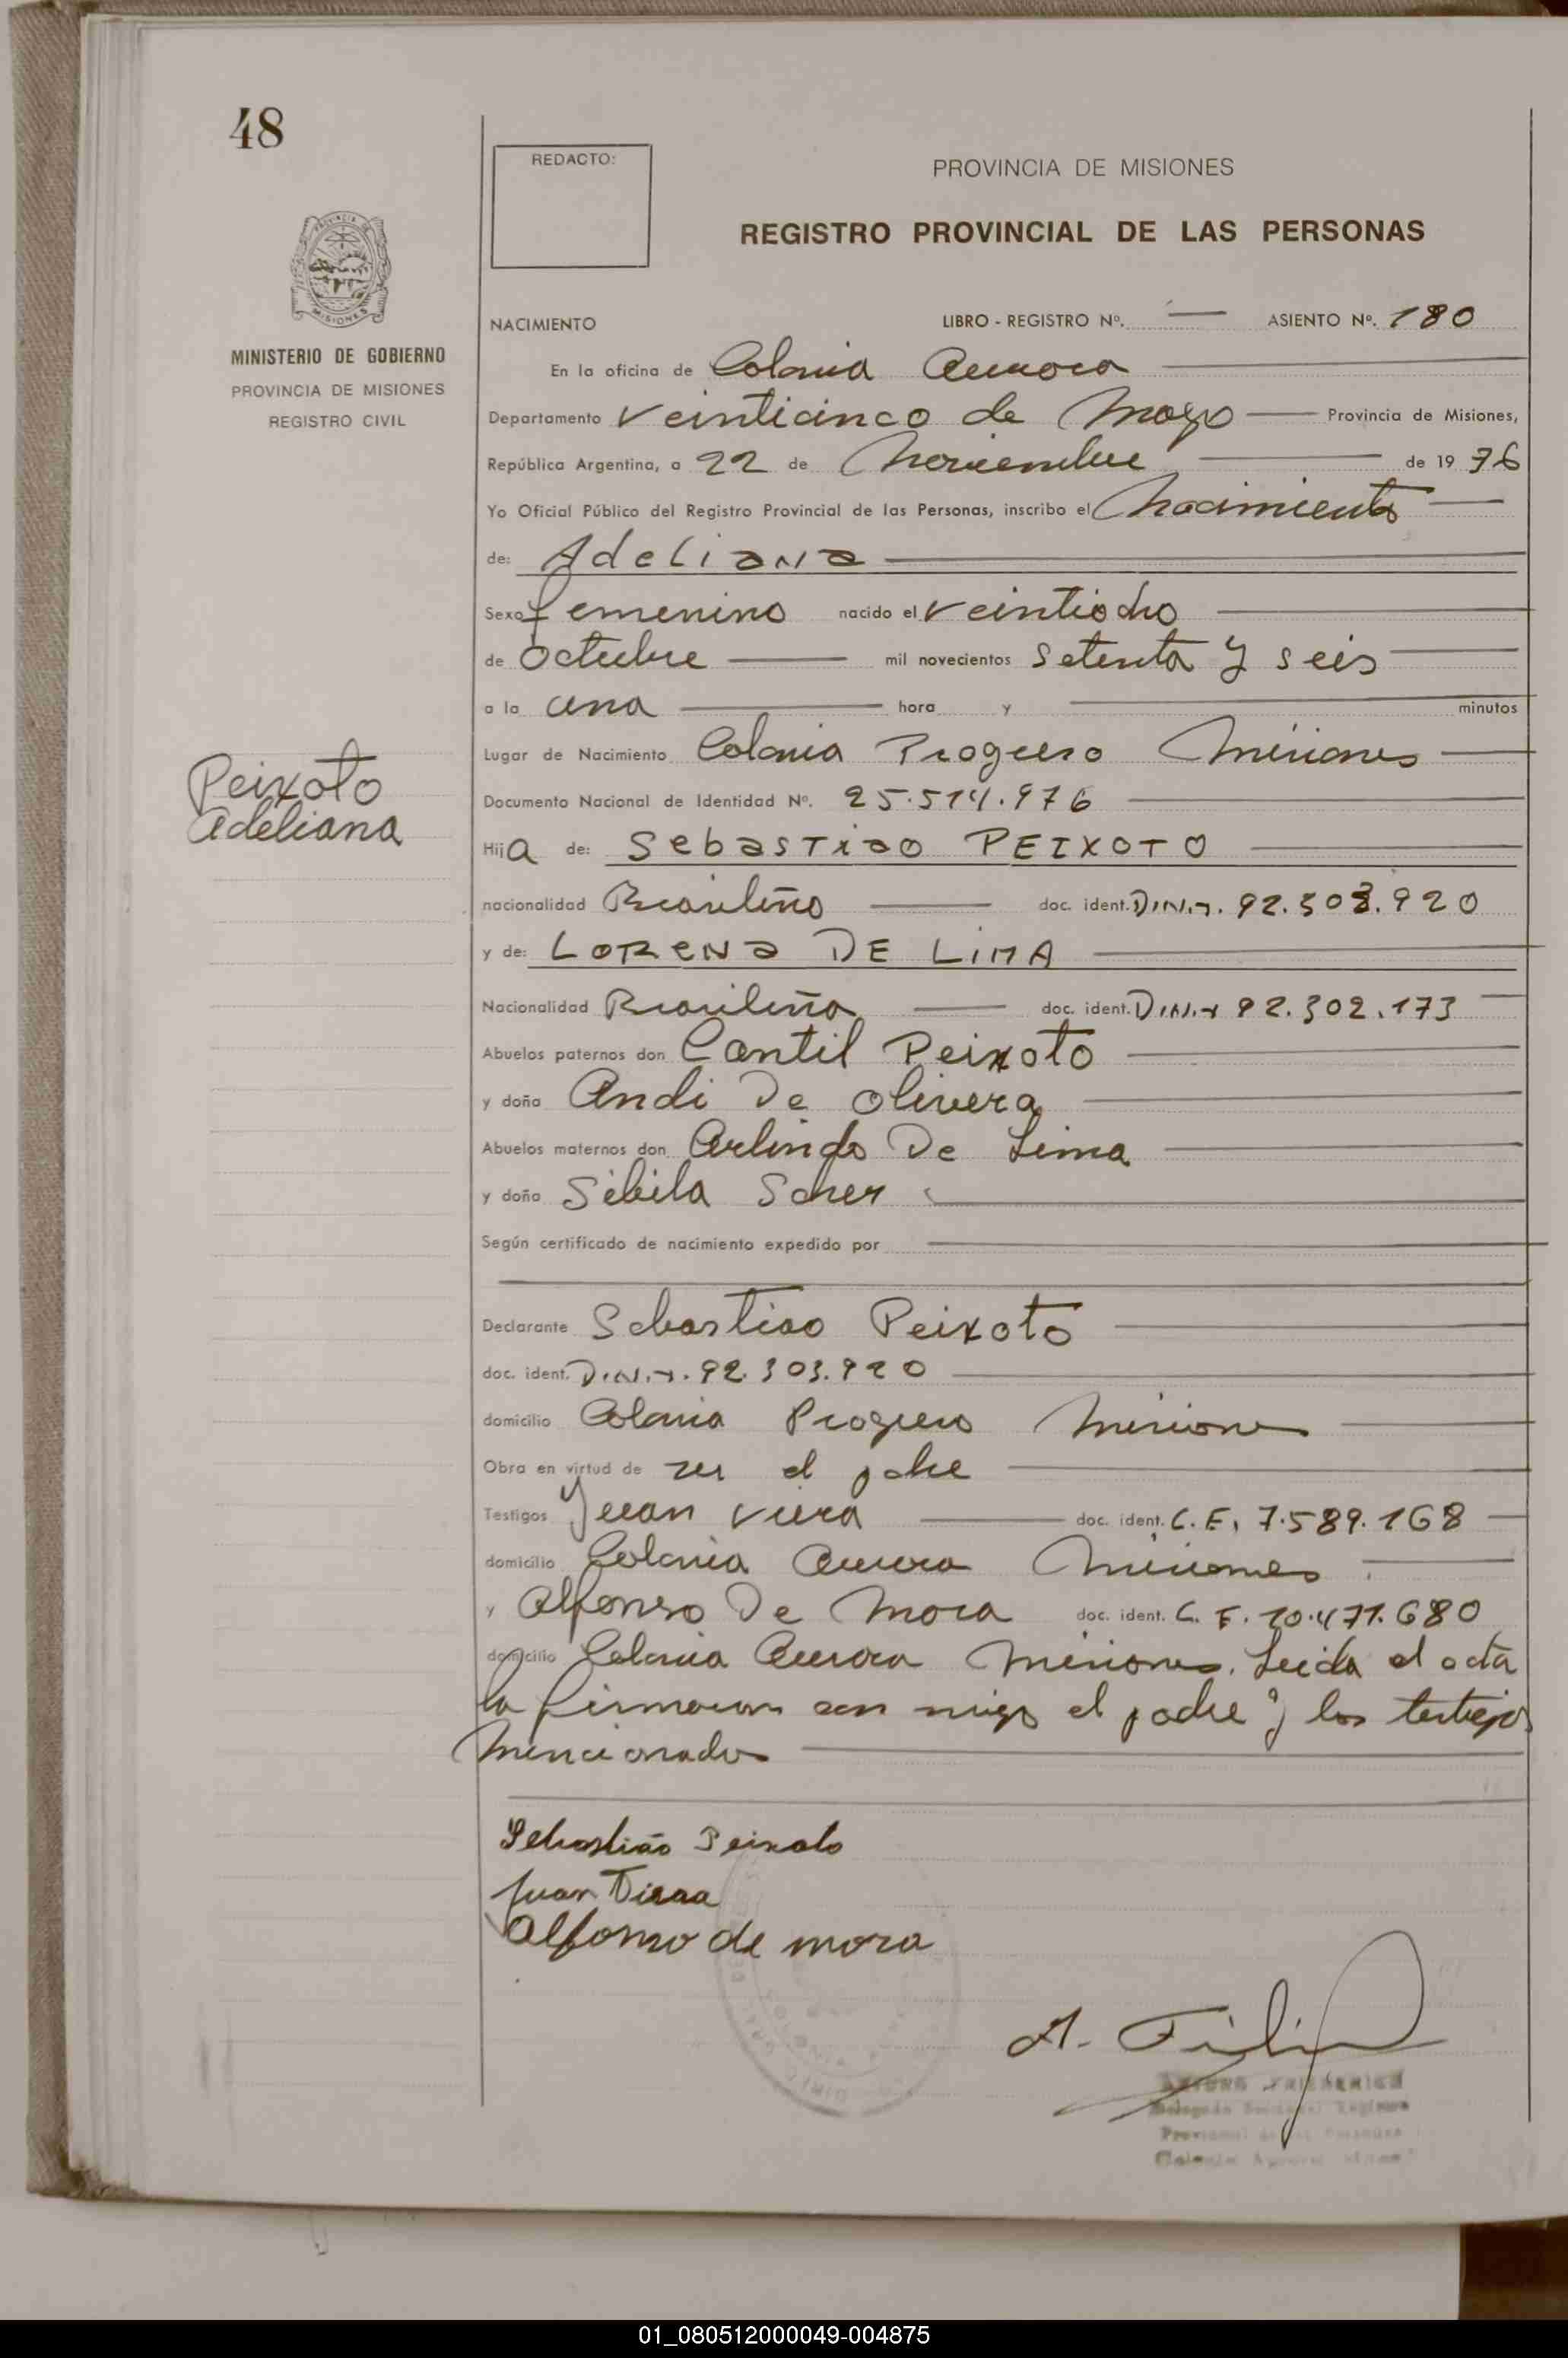 48
REDACTO:
PROVINCIA DE MISIONES
REGISTRO PROVINCIAL DE LAS PERSONAS
MINISTERIO DE GOBIERNO
PROVINCIA DE MISIONES
REGISTRO CIVIL
NACIMIENTO LIBRO - REGISTRO Nº. — ASIENTO Nº. 180
En la oficina de Colonia Aurora
Departamento Veinticinco de Mayo Provincia de Misiones,
República Argentina, a 22 de Noviembre de 1976
Yo Oficial Público del Registro Provincial de las Personas, inscribo el Nacimiento
de: Adeliana
Sexo femenino nacido el veintiocho
de Octubre mil novecientos setenta y seis
a la una hora y minutos
Lugar de Nacimiento Colonia Progreso Misiones
Peixoto
Adeliana
Documento Nacional de Identidad Nº. 25.514.976
Hija de: Sebastiao PEIXOTO
nacionalidad Brasileño doc. ident. D.N.I. 92.303.920
y de: LORENA DE LIMA
Nacionalidad Brasileña doc. ident. D.N.I 92.302.173
Abuelos paternos don Cantil Peixoto
y doña Andi De Olivera
Abuelos maternos don Arlindo De Lima
y doña Sibila Scher
Según certificado de nacimiento expedido por
Declarante Sebastiao Peixoto
doc. ident. D.N.I. 92.303.920
domicilio Colonia Progreso Misiones
Obra en virtud de ser el padre
Testigos Juan Viera doc. ident. C.E. 7.589.168
domicilio Colonia Aurora Misiones
y Alfonso De Mora doc. ident. C. F. 10.471.680
domicilio Colonia Aurora Misiones. Leida el acta
la firmaron con migo el padre y los testigos
mencionados
Sebastião Peixoto
Juan Vieraa
Alfonso de mora
01_080512000049-004875